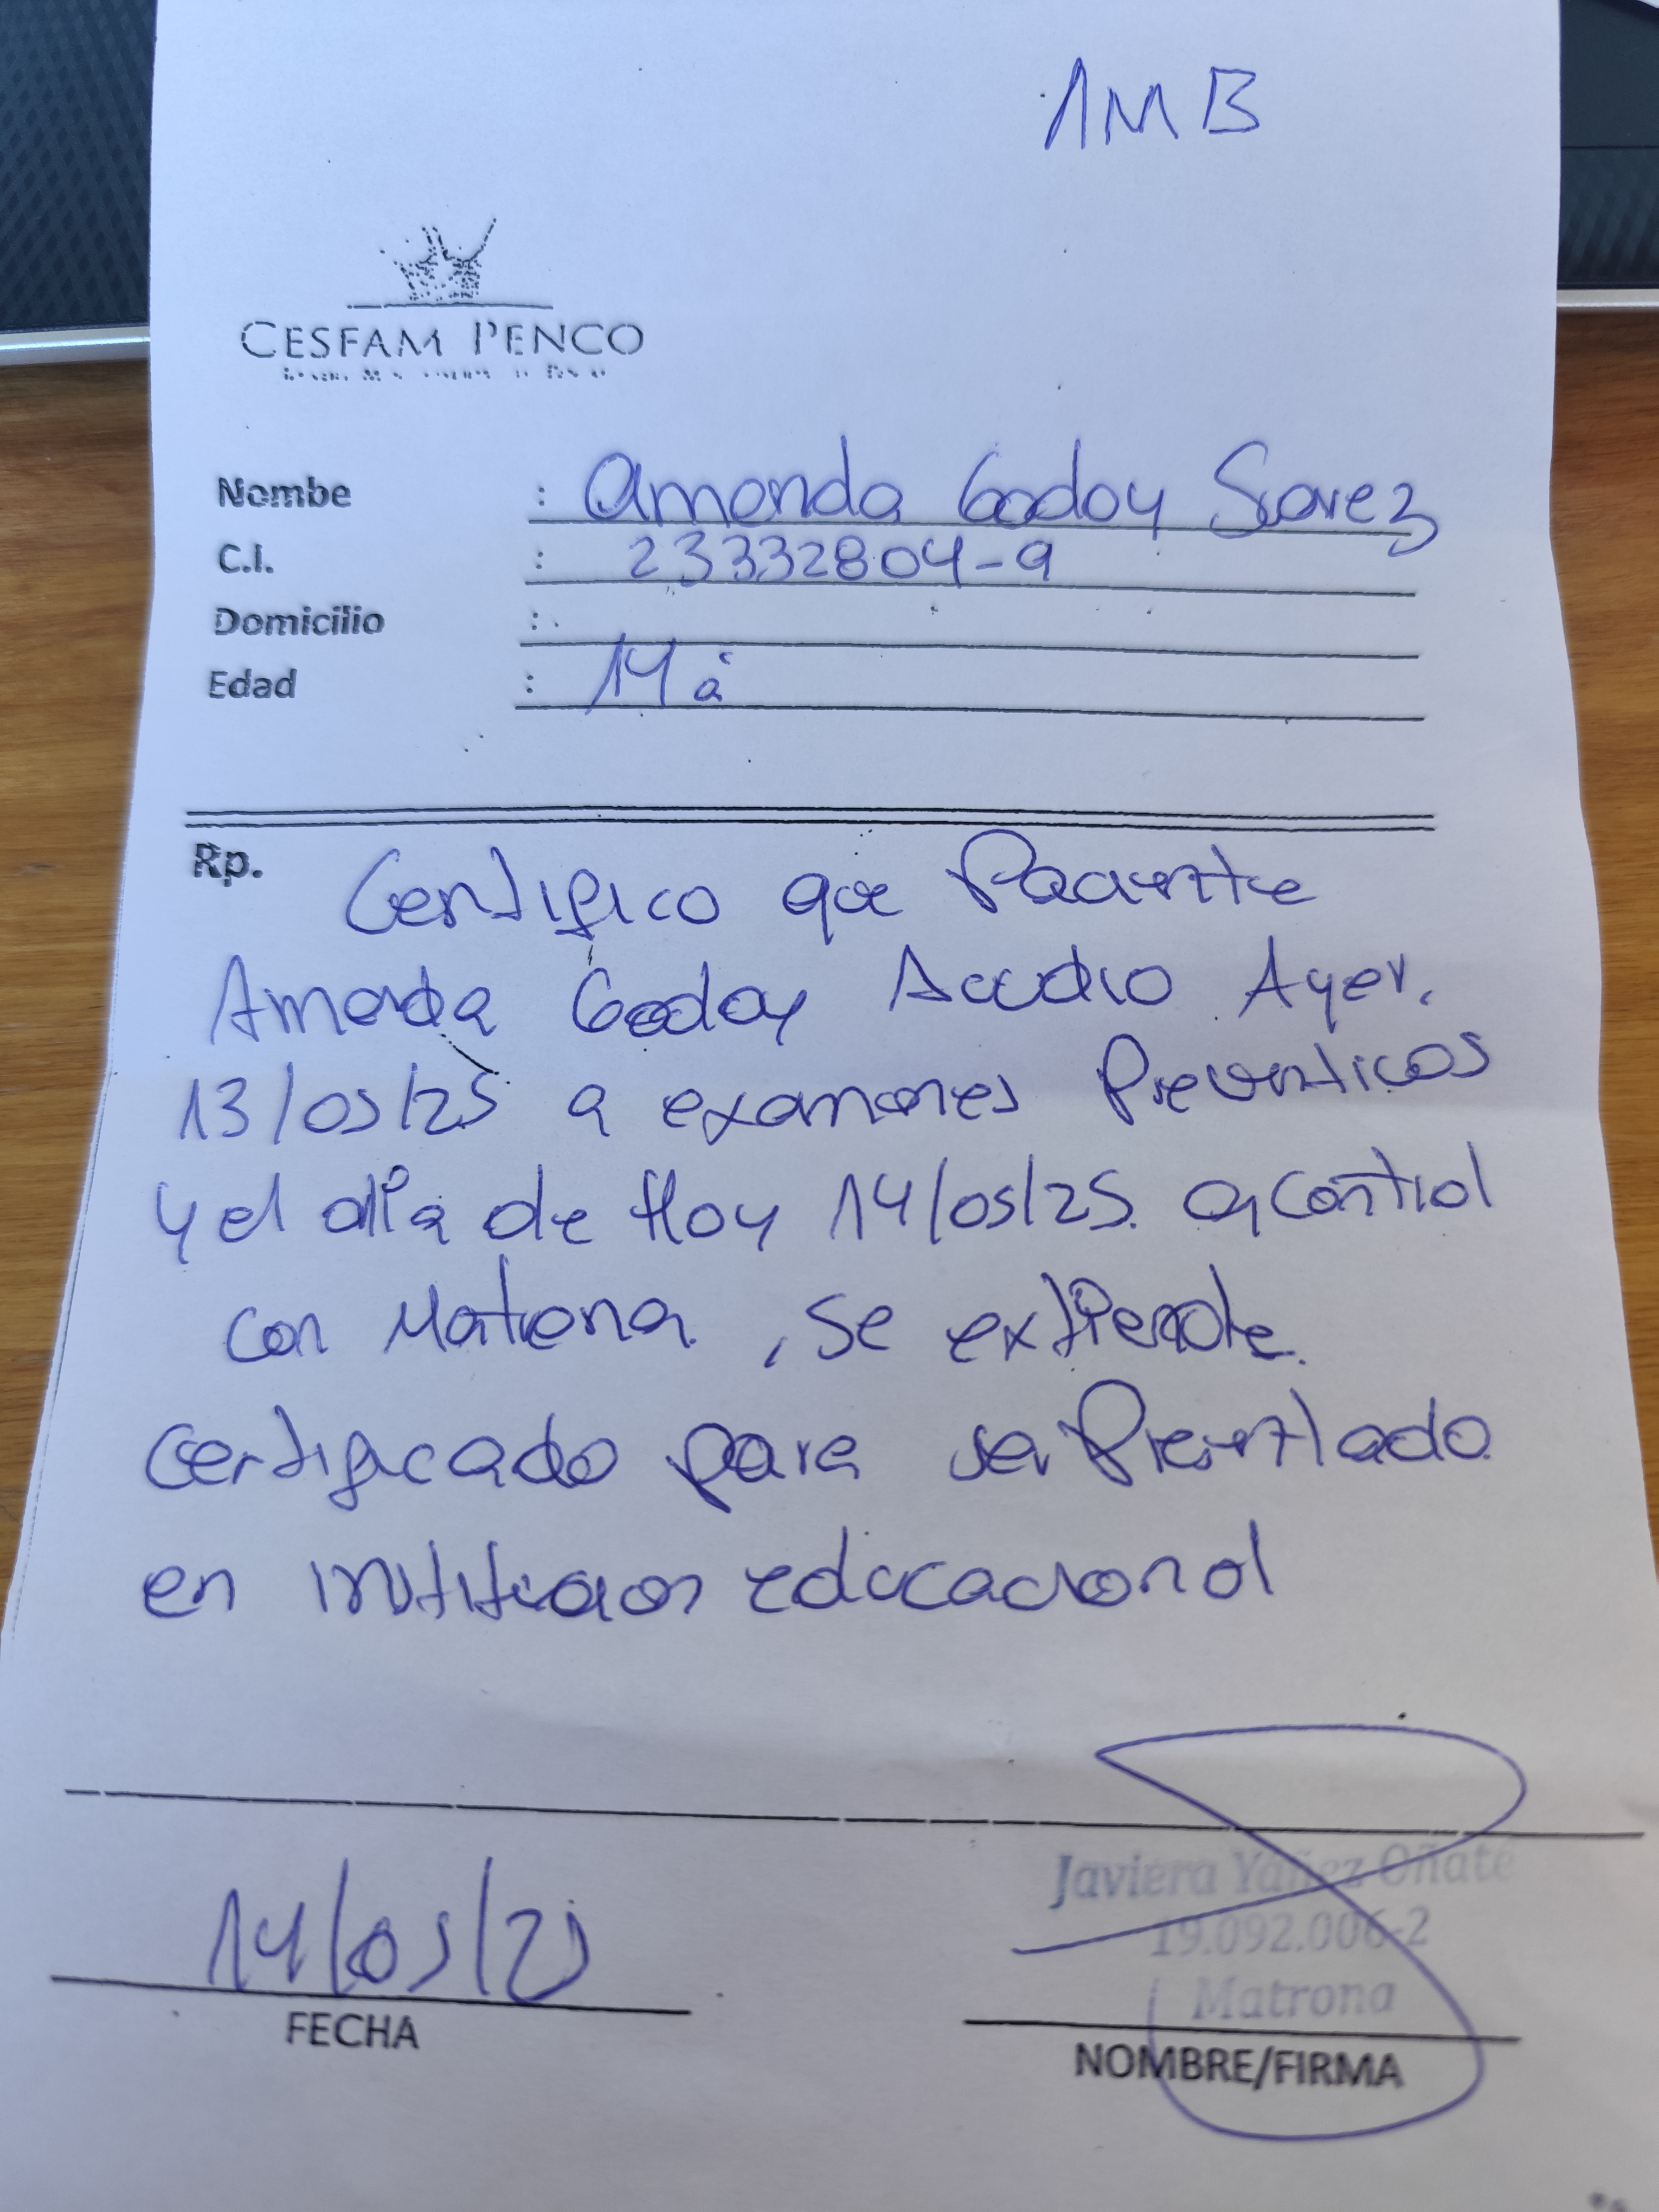 1MB
CESFAM PENCO
Nombe : Amanda Godoy Suarez
C.I. : 23332804-9
Domicilio :
Edad : 14 a
Rp. Certifico que Paciente
Amanda Godoy Acudio Ayer.
13/05/25 a examenes Preventicos
y el día de Hoy 14/05/25. a control
con Matrona, se extiende.
certificado para ser Presentado
en institucion educacional
14/05/25
FECHA
Javiera Yáñez Oñate
19.092.006-2
Matrona
NOMBRE/FIRMA